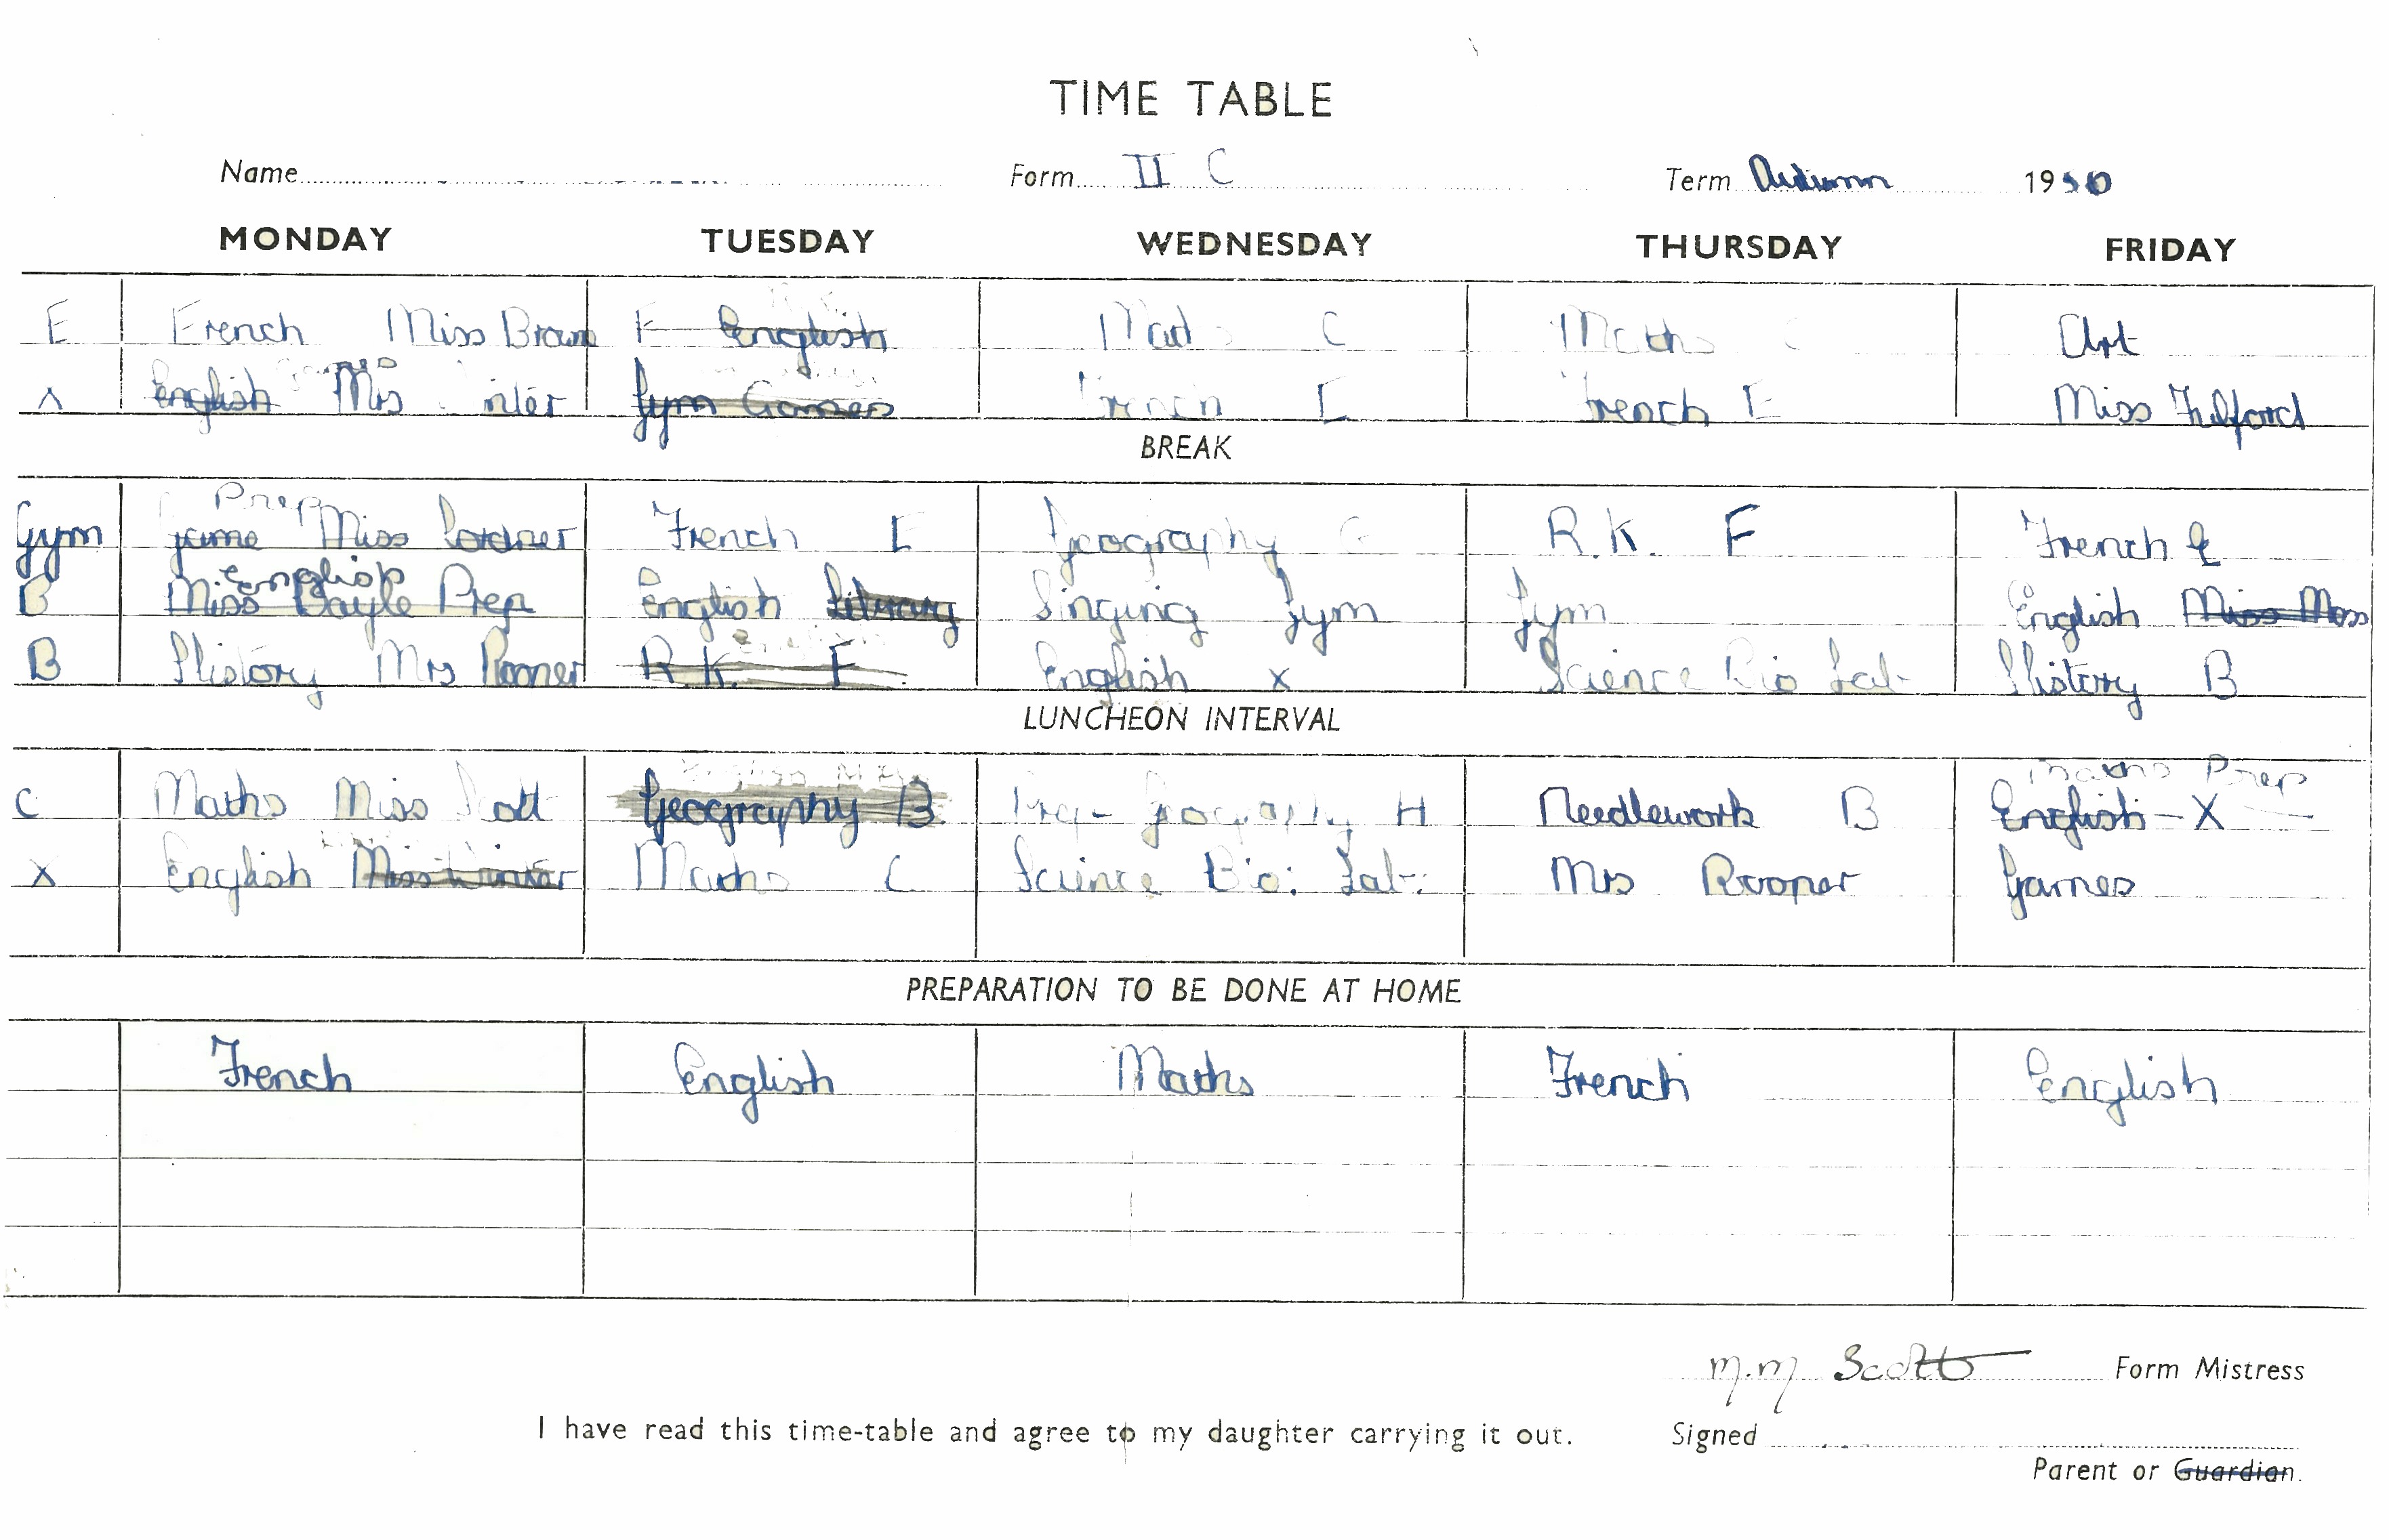 TIME TABLE
Name Form II C Term Autumn 1950
MONDAY TUESDAY WEDNESDAY THURSDAY FRIDAY
E French Miss Brown F English C Maths Art
English Mrs Gym Games French E French E Miss Fulford
BREAK
Prep
Gym game Miss French E Geography R.K. F French E
English
B Miss Bayle Prep English Library Singing Gym Gym English Miss Moss
B History Mrs R.K. F English x Science Bio Lab History B
LUNCHEON INTERVAL
Maths Prep
C Maths Miss Scott Geography B Prep - Geography H Needlework B English - X
X English Miss Winter Maths C Science Bio: Lab: Mrs Rooper Games
PREPARATION TO BE DONE AT HOME
French English Maths French English
M.M Scott Form Mistress
I have read this time-table and agree to my daughter carrying it out. Signed
Parent or Guardian.